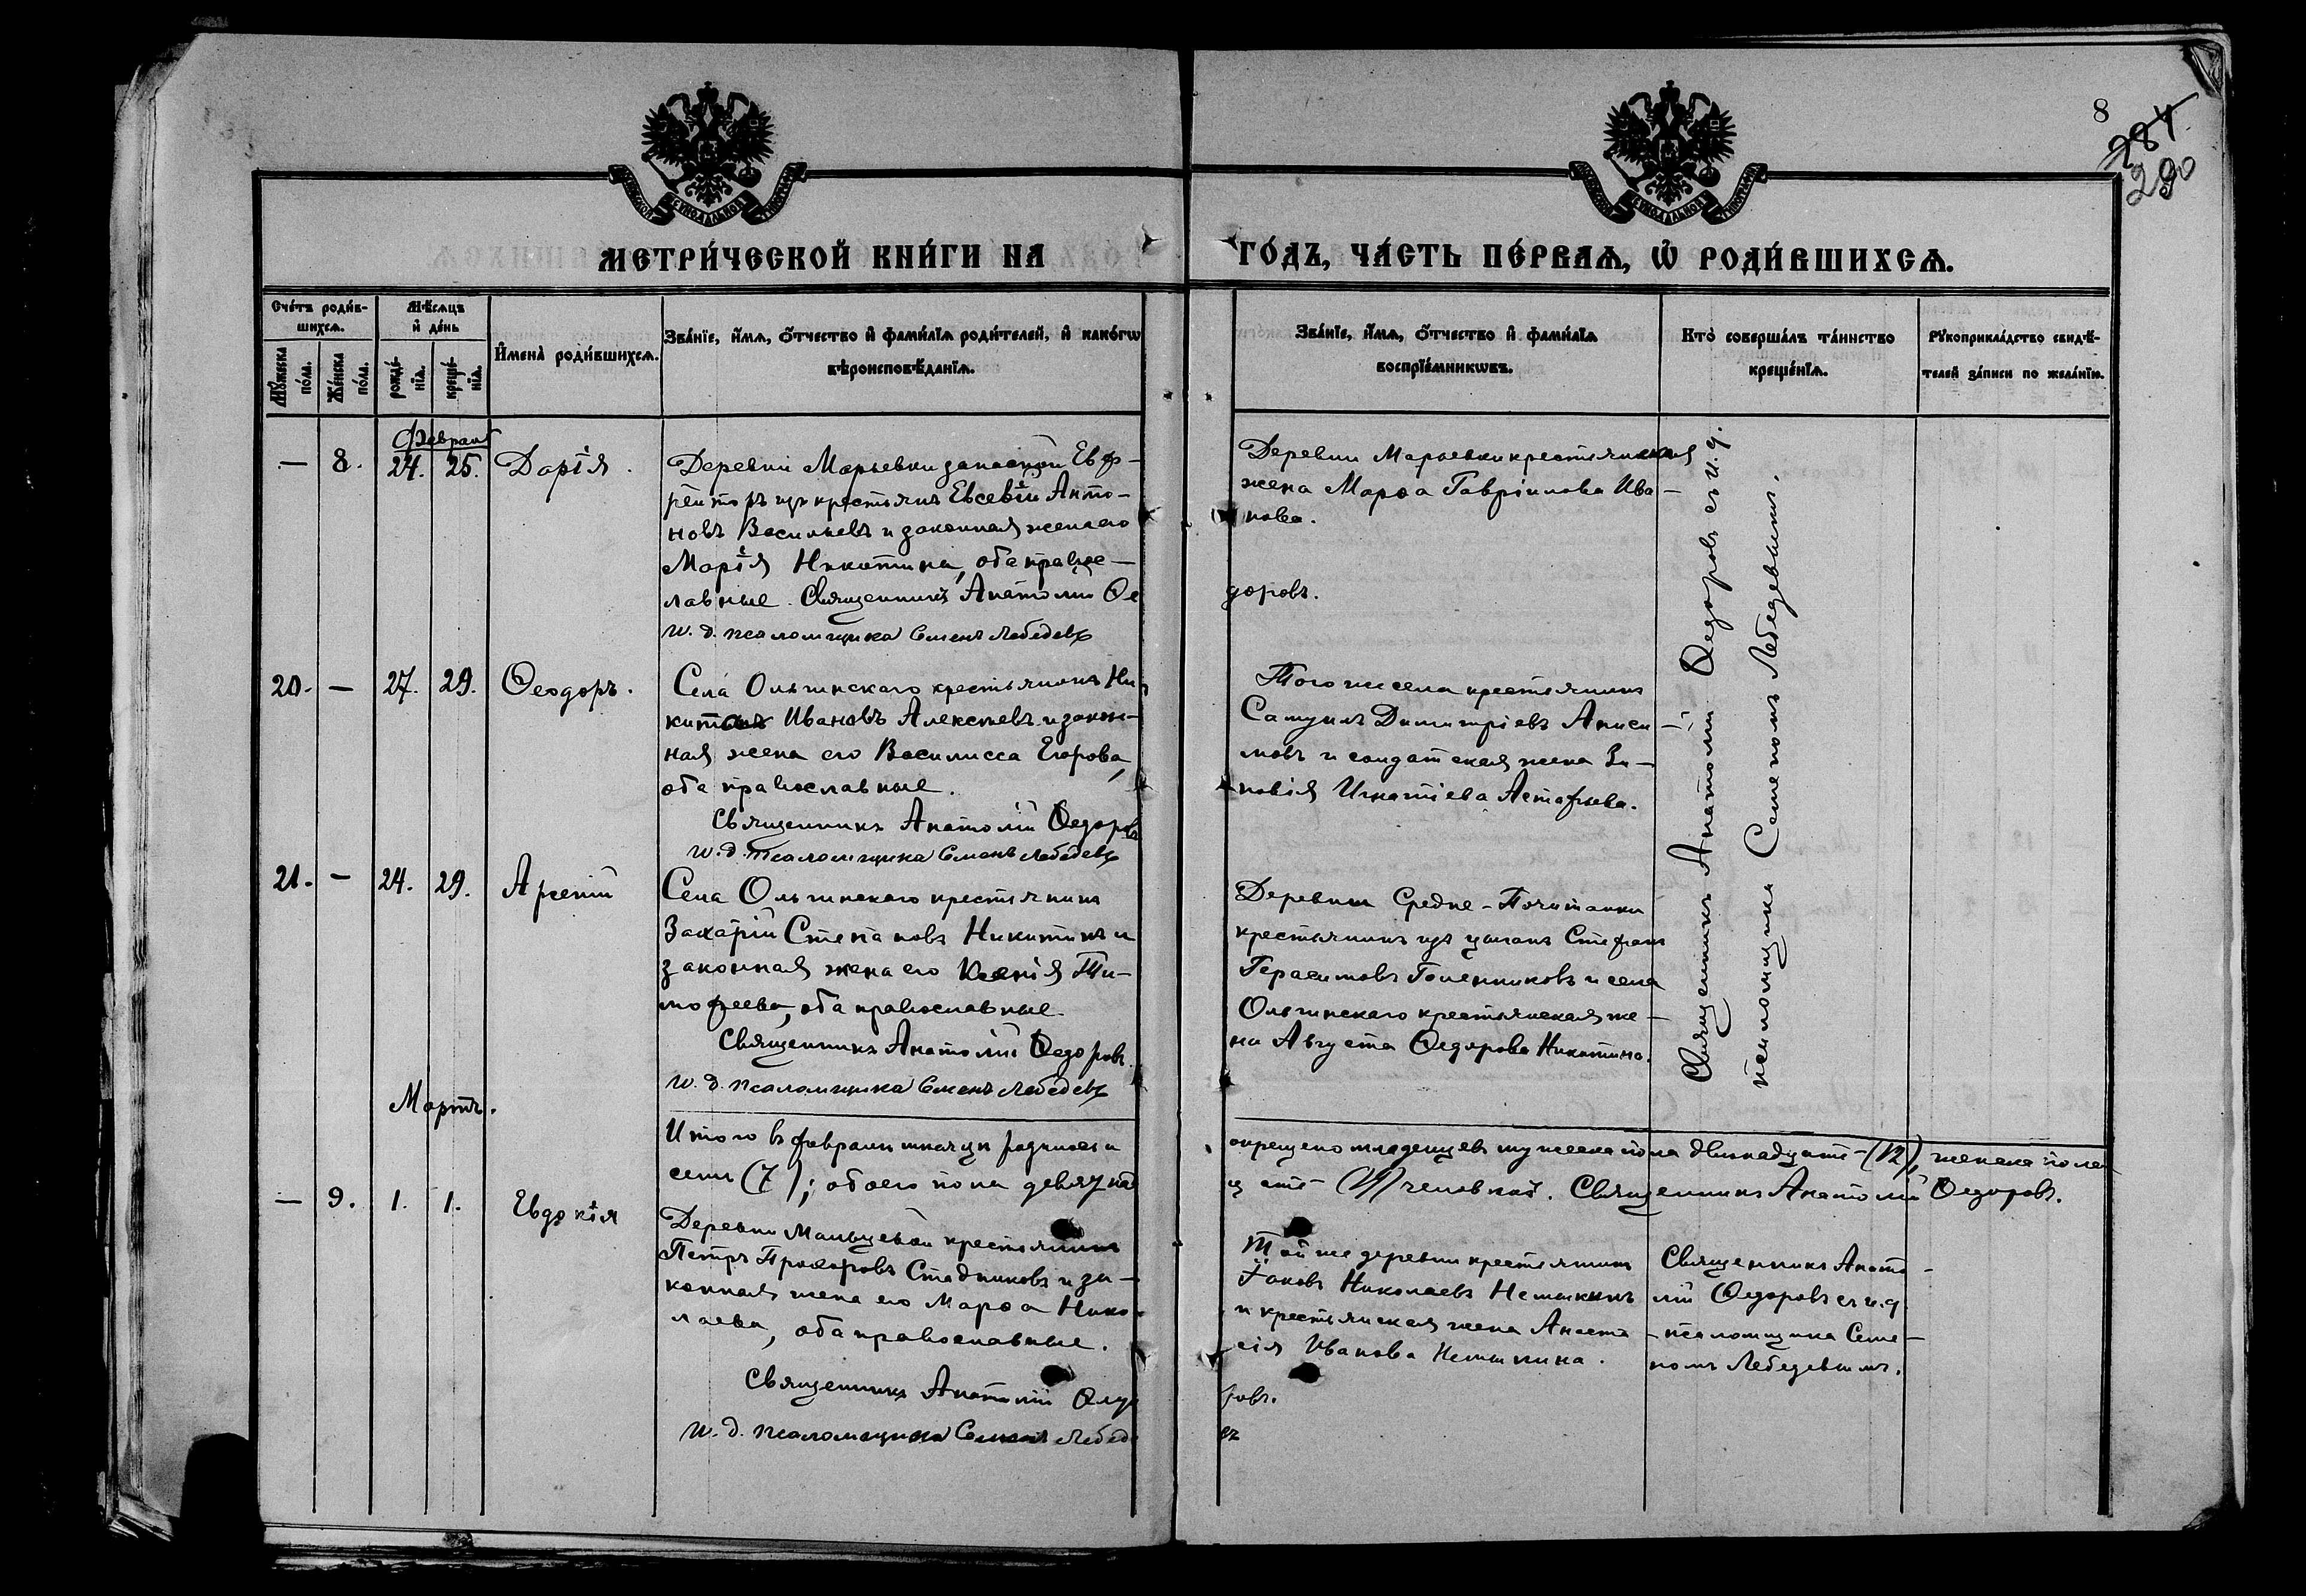 8
284
290
МЕТРИ́ЧЕСКОЙ КНИ́ГИ НА ГО́ДЪ, ЧА́СТЬ ПЕ́РВАѦ, Ѡ҆ РОДИ́ВШИХСѦ.
Сче́тъ роди́в-
шихсѧ.
Мꙋ́жеска по́ла.
Же́нска по́ла.
Мѣ́сѧцъ
и҆ де́нь
рожде́-
нїѧ.
креще́-
нїѧ.
И҆мена̀ роди́вшихсѧ.
Зва́нїе, и҆́мѧ, ѻ҆́тчество и҆ фами́лїѧ роди́телей, и҆ како́гѡ
вѣроисповѣ́данїѧ.
Зва́нїе, и҆́мѧ, ѻ҆́тчество и҆ фами́лїѧ
воспрїе́мникѡвъ.
Кто̀ соверша́лъ та́инство
креще́нїѧ.
Рꙋкоприкла́дство свидѣ́-
телей за́писи по жела́нїю.
Февраль
— 8. 24. 25. Дарія.
Деревни Марьевки запасной Еф-
рейторъ изъ крестьянъ Евсевій Анто-
новъ Васильевъ и законная жена его
Марія Никитина, оба правос-
лавные. Священникъ Анатолій Ѳе
доровъ.
И. д. псаломщика Семенъ Лебедевъ
Деревни Марьевки крестьянская
жена Марѳа Гавріилова Ива-
нова.
Священникъ Анатолій Ѳедоровъ съ и. д.
псаломщика Семеномъ Лебедевымъ.
20. — 27. 29. Ѳеодоръ.
Села Ольгинскаго крестьянинъ Ни-
кита Ивановъ Алексѣевъ и закон-
ная жена его Василисса Егорова,
оба православные.
Священникъ Анатолій Ѳедоровъ
И. д. псаломщика Семенъ Лебедевъ
Того же села крестьянинъ
Самуилъ Димитріевъ Аниси-
мовъ и солдатская жена Зи-
новія Игнатіева Астафьева.
21. — 24. 29. Арсеній
Села Ольгинскаго крестьянинъ
Захарій Степановъ Никитинъ и
законная жена его Ксенія Ти-
мофеева, оба православные.
Священникъ Анатолій Ѳедоровъ.
И. д. псаломщика Семенъ Лебедевъ
Деревни Средне-Почитанки
крестьянинъ изъ Стефанъ
Герасимовъ Голенниковъ и села
Ольгинскаго крестьянская же-
на Августа Ѳедорова Никитина.
Мартъ.
Итого въ февралѣ мѣсяцѣ родилось и окрещено младенцевъ мужеска пола двѣнадцать (12), женска пола
семь (7); обоего пола девятнад цать (19) человѣкъ. Священникъ Анатолій Ѳедоровъ.
— 9. 1. 1. Евдокія
Деревни Мальцевой крестьянинъ
Петръ Прохоровъ Стадниковъ и за-
конная жена его Марѳа Нико-
лаева, оба православные.
Священникъ Анатолій Ѳедо
ровъ.
И. д. псаломщика Семенъ Лебеде
въ
Той же деревни крестьянинъ
Іаковъ Николаевъ Немыкинъ
и крестьянская жена Анаста-
сія Иванова Немыкина.
Священникъ Анато-
лій Ѳедоровъ съ и. д.
псаломщика Семе-
номъ Лебедевымъ.